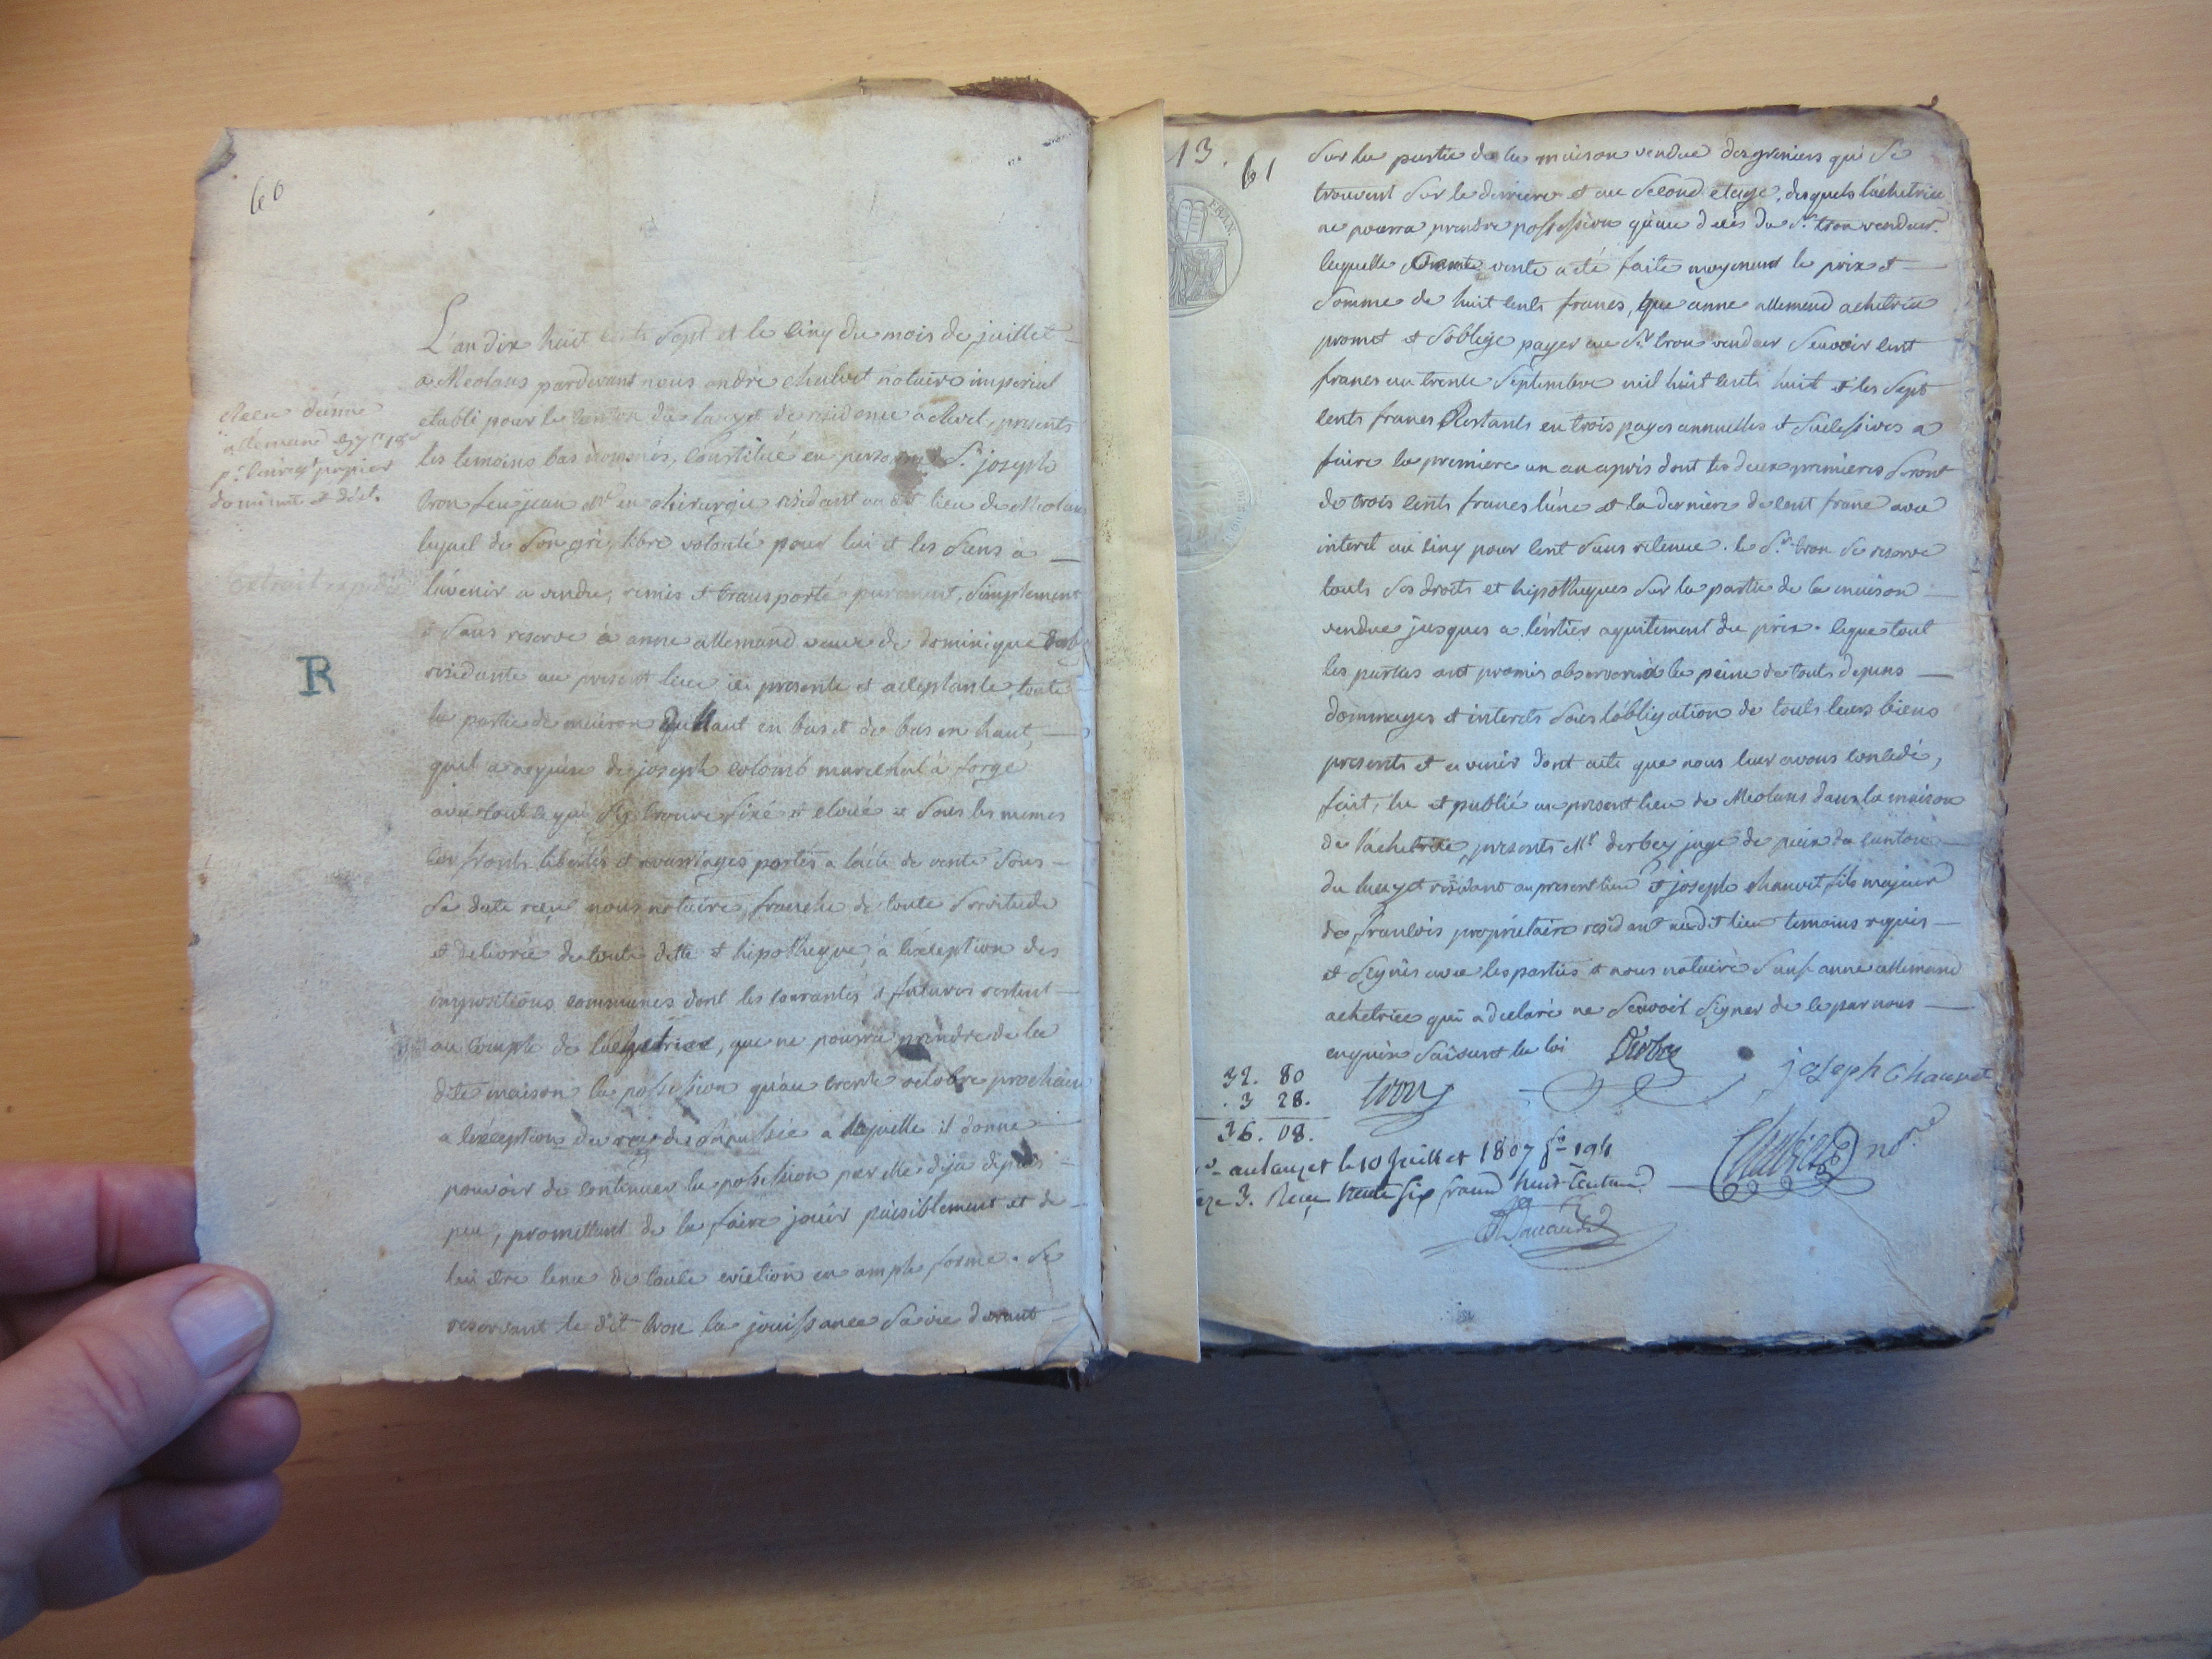 60
L'an dix huit cents sept et le cinq du mois de juillet
a Meolans pardevant nous andré chalvet notaire imperial
etabli pour le canton du lauzet de residence a . presents
les temoins bas nommés, constitué en personne Sr. joseph
tron feu jean Me en chirurgie residant au dit lieu de Meolans
lequel de son gré, libre volonté pour lui et les siens a
lavenir a vendu, remis et transporté purement, simplement
& sans reserve à anne allemand veuve de dominique
residante au present lieu ici presente et acceptante, toute
la partie de maison du haut en bas et de bas en haut,
quil a acquise de joseph colomb marechal à forge
avec tout ce qui s'y trouve fixé et cloué et sous les memes
confronts libertés et avantages portés a lacte de vente sous
sa date reçu nous notaire, franche de toute servitude
et delivrée de toute dette et hipotheque, à lexception des
impositions communes dont les courantes & futures restent
au compte de lachetrice, que ne pourra prendre de la
dite maison la possession qu'au trente octobre prochain
a lexception du a laquelle il donne
pouvoir de continuer la possession par elle deja depuis
peu, promettant de la faire jouir paisiblement et de
lui etre tenu de toute eviction en ample forme. se
reservant le dit tron la jouissance sa vie durant
reçu danne
allemand
pr. papier
de minute et
Extrait expedié
R
13.
61
FRAN.
sur la partie de la maison vendue des greniers qui se
trouvent sur le derriere et au second etage, desquels lachetrice
ne pourra prendre possession qu'au decés du Sr. tron vendeur.
laquelle vente a eté faite moyenant le prix et
somme de huit cents francs, que anne allemand achetrice
promet et s'oblige payer au Sr tron vendeur scavoir cent
francs au trente septembre mil huit cents huit et les sept
cents francs restants en trois payes annuelles et successives a
faire la premiere un an apris dont les deux premieres seront
de trois cents francs l'une et la derniere de cent franc avec
interet au cinq pour cent sans retenue. le Sr. tron se reserve
touts ses droits et hipotheques sur la partie de la maison
vendue jusques a l'entier aquitement du prix. ceque tout
les parties ont promis observer a la peine de touts depens
dommages et interets sous l'obligation de touts leurs biens
presents et avenir dont acte que nous leur avons concedé,
fait, lu et publié au present lieu de Meolans dans la maison
de l'achetrice, presents Mr derbey juge de paix du canton
du lauzet residant au present lieu et joseph chauvet fils majeur
de francois propriétaire residant audit lieu temoins requis
et signés avec les parties & nous notaire sauf anne allemand
achetrice qui a declaré ne scavoir signer de ce par nous
enquise suivant la loi Derbey
tron joseph chauvet
32. 80
. 3 28.
36. 08.
au lauzet le 10 juillet 1807 fo 194
3. Reçu trente six francs huit Centimes
Chalvet nore